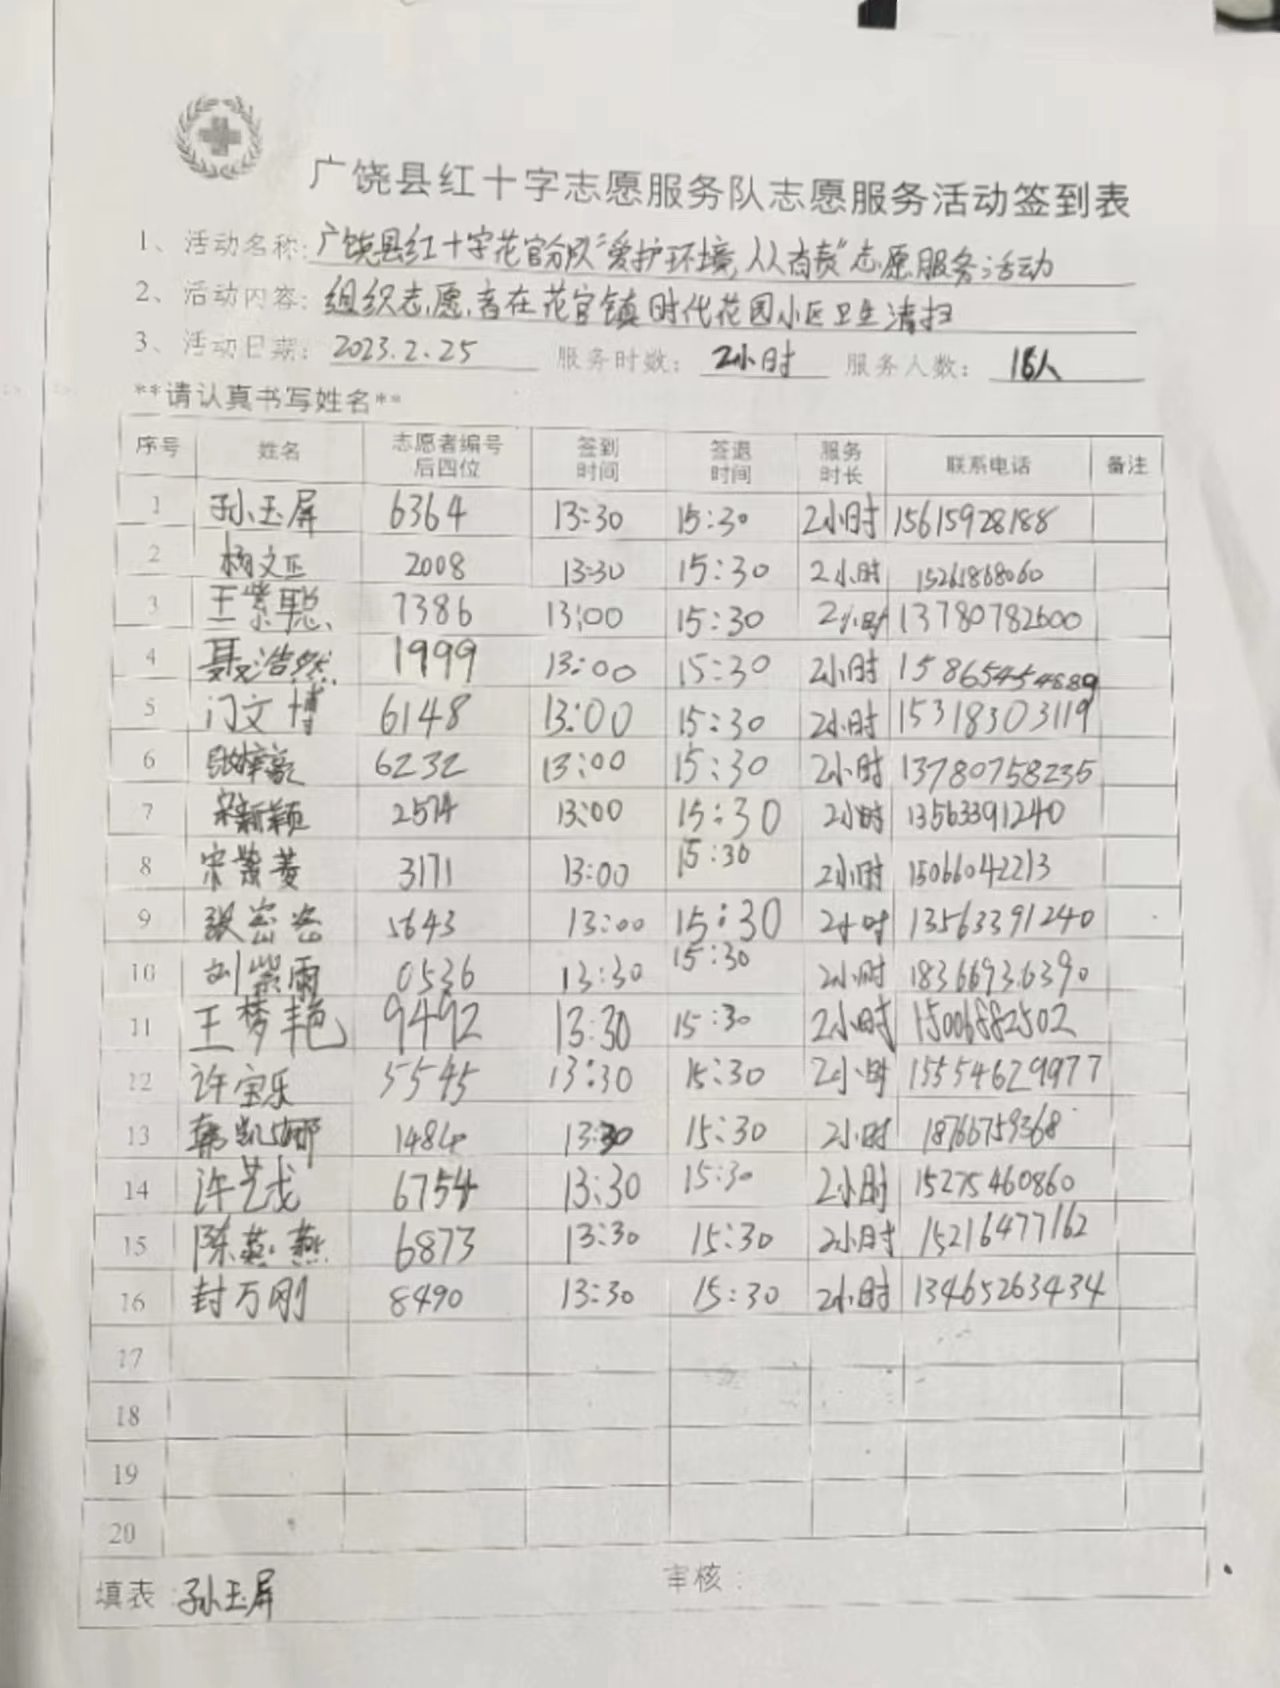 广饶县红十字志愿服务队志愿服务活动签到表
1、活动名称：广饶县红十字花官分队"爱护环境,人人有责"志愿服务活动
2、活动内容：组织志愿者在花官镇时代花园小区卫生清扫
3、活动日期：2023.2.25 服务时数：2小时 服务人数：16人
**请认真书写姓名**
序号 姓名 志愿者编号后四位 签到时间 签退时间 服务时长 联系电话 备注
1 孙玉屏 6364 13:30 15:30 2小时 15615928188
2 杨文正 2008 13:30 15:30 2小时 15261868060
3 王紫聪 7386 13:00 15:30 2小时 13780782600
4 聂浩然 1999 13:00 15:30 2小时 15865454889
5 门文博 6148 13:00 15:30 2小时 15318303119
6 张梓豪 6232 13:00 15:30 2小时 13780758235
7 宋新颖 2574 13:00 15:30 2小时 13563391240
8 宋紫菱 3171 13:00 15:30 2小时 15066042213
9 张密密 5643 13:00 15:30 2小时 13563391240
10 刘紫雨 0536 13:30 15:30 2小时 18366936390
11 王梦艳 9492 13:30 15:30 2小时 15006882502
12 许宝乐 5545 13:30 15:30 2小时 15554629977
13 韩凯娜 1484 13:30 15:30 2小时 18766759368
14 许艺戈 6754 13:30 15:30 2小时 15275460860
15 陈燕燕 6873 13:30 15:30 2小时 15216477162
16 封万刚 8490 13:30 15:30 2小时 13465263434
17
18
19
20
填表：孙玉屏 审核：